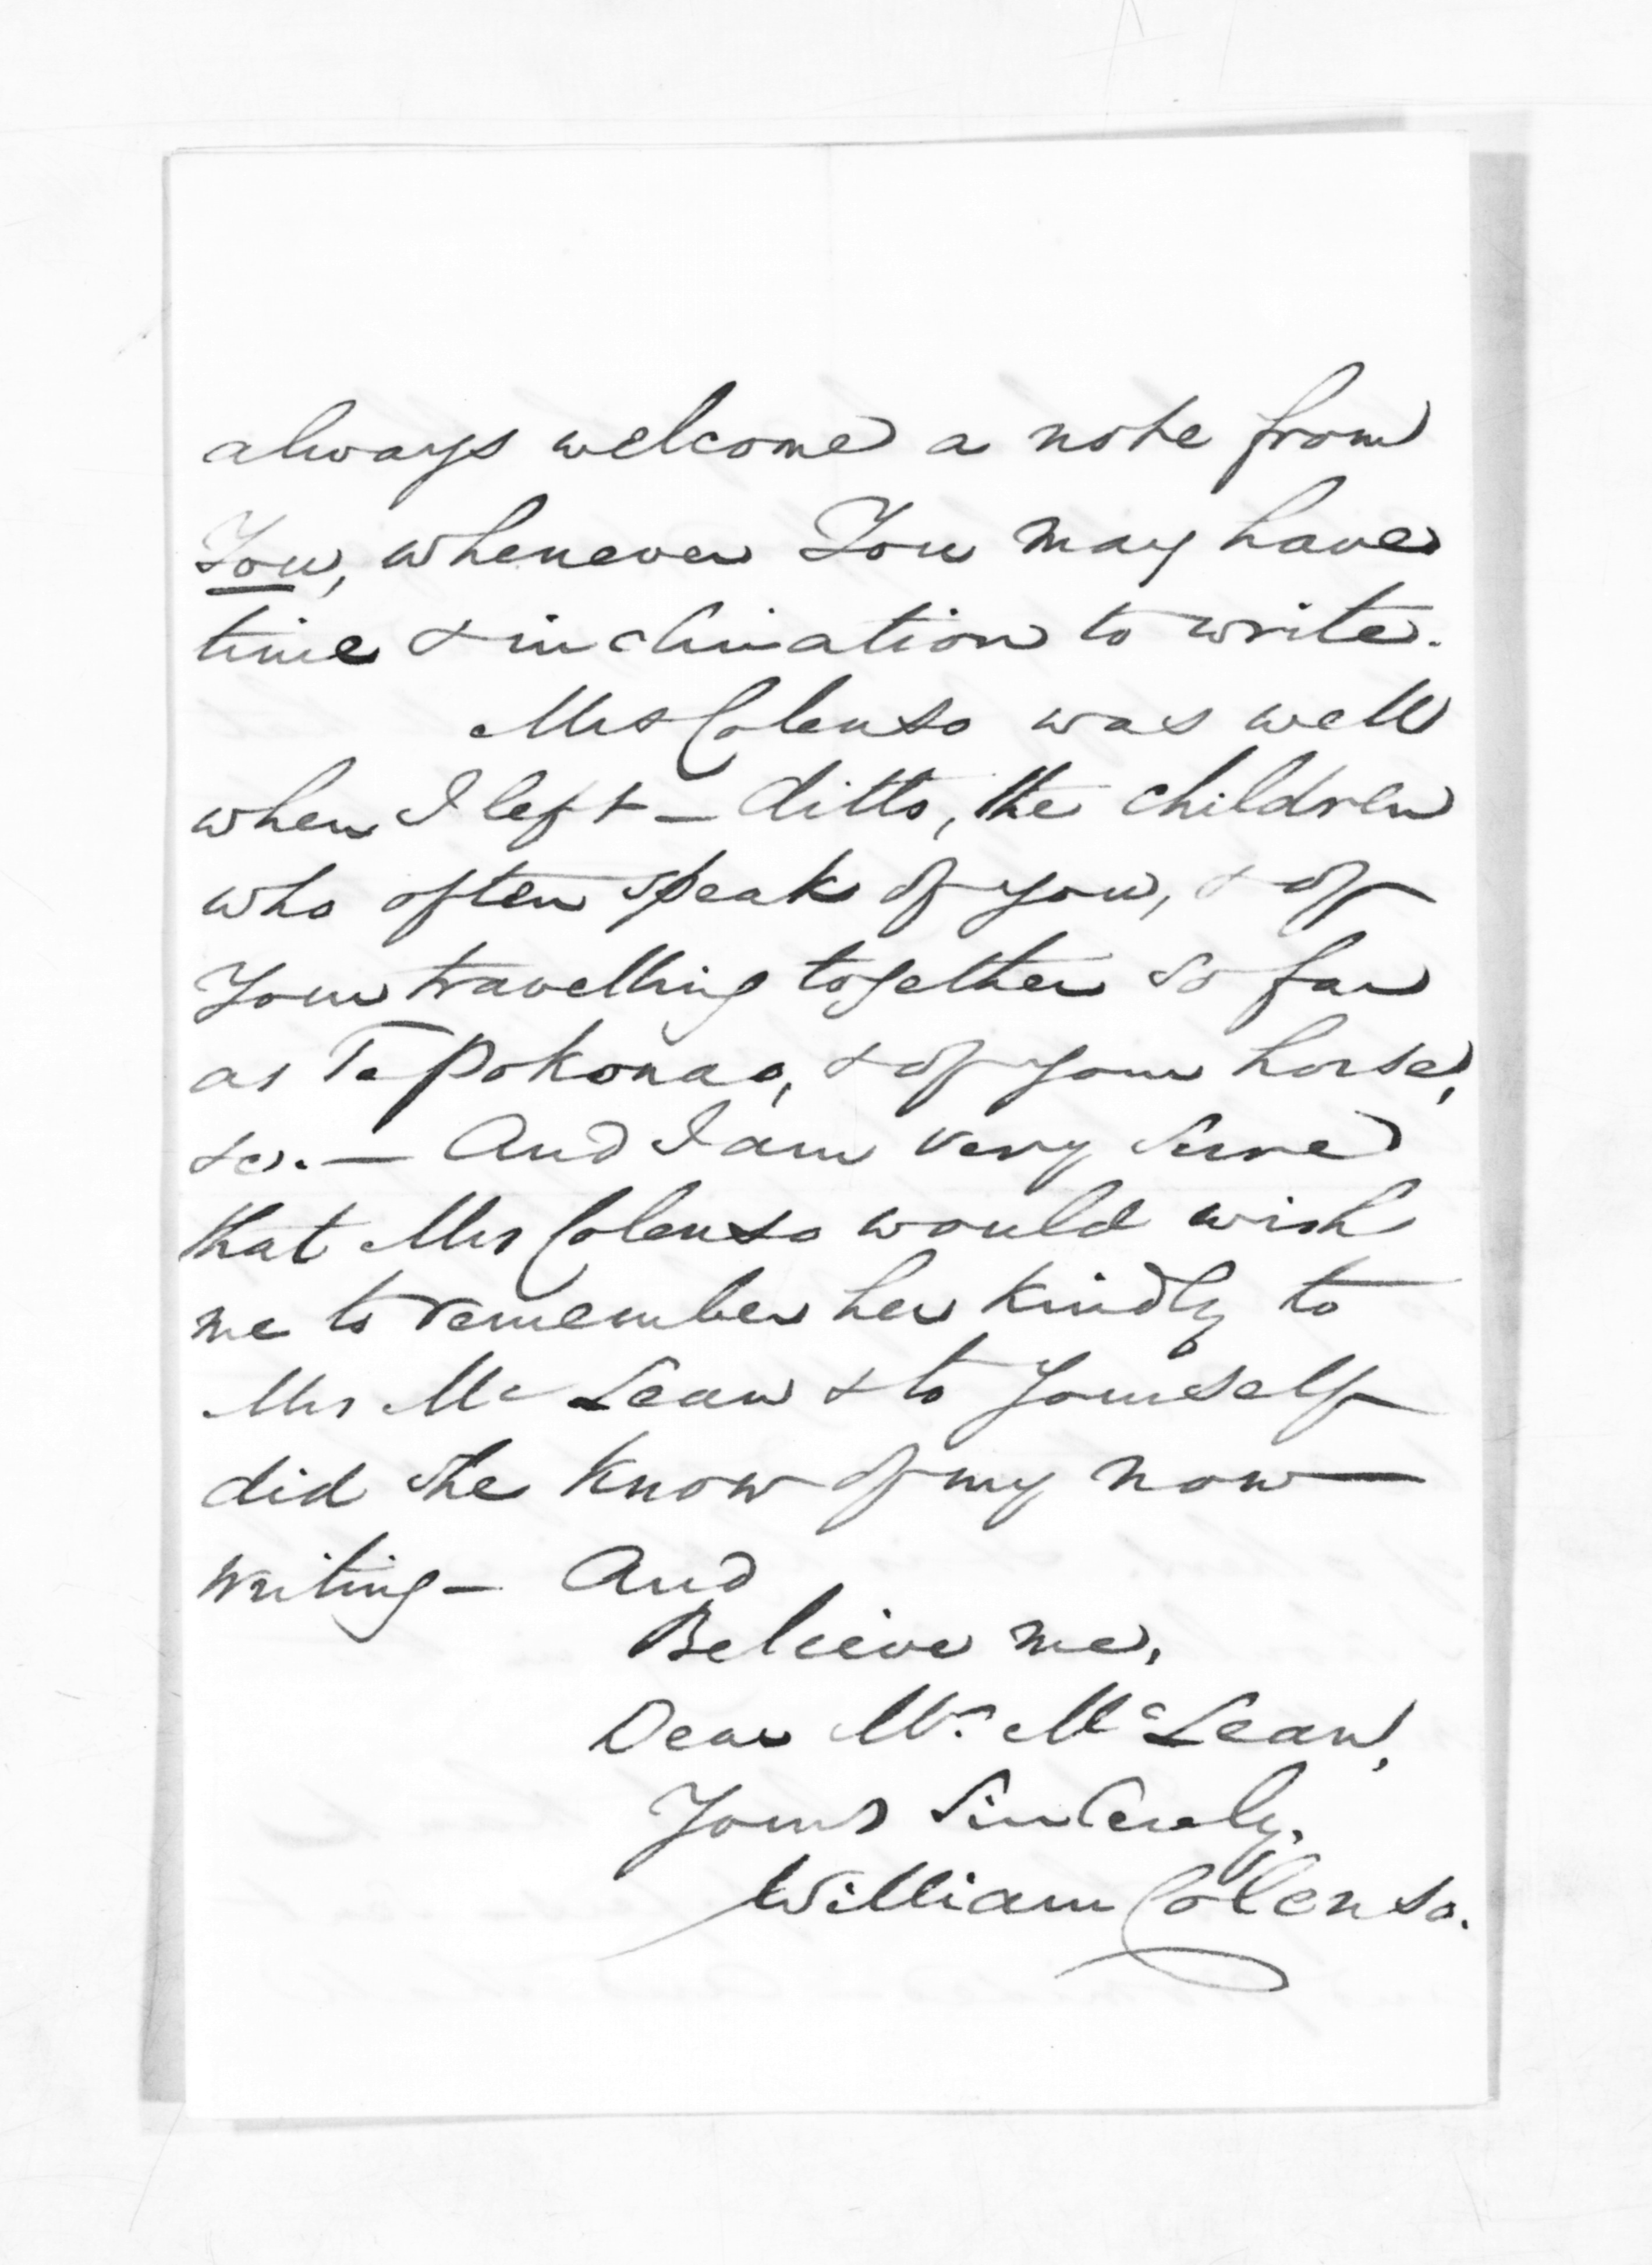 always welcome a note from
You, whenever You may have
time & inclination to write.
Mrs Colenso was well
when I left – ditto, the children
who often speak of you, & of
Your travelling together so far
as Te Pokonao, & of your horse,
&c. — And I am very sure
that Mrs Colenso would wish
me to remember her kindly to
Mrs McLean & to Yourself
did she know of my now
writing – And
Believe me,
Dear Mr. McLean,
Yours Sincerely,
William Colenso.